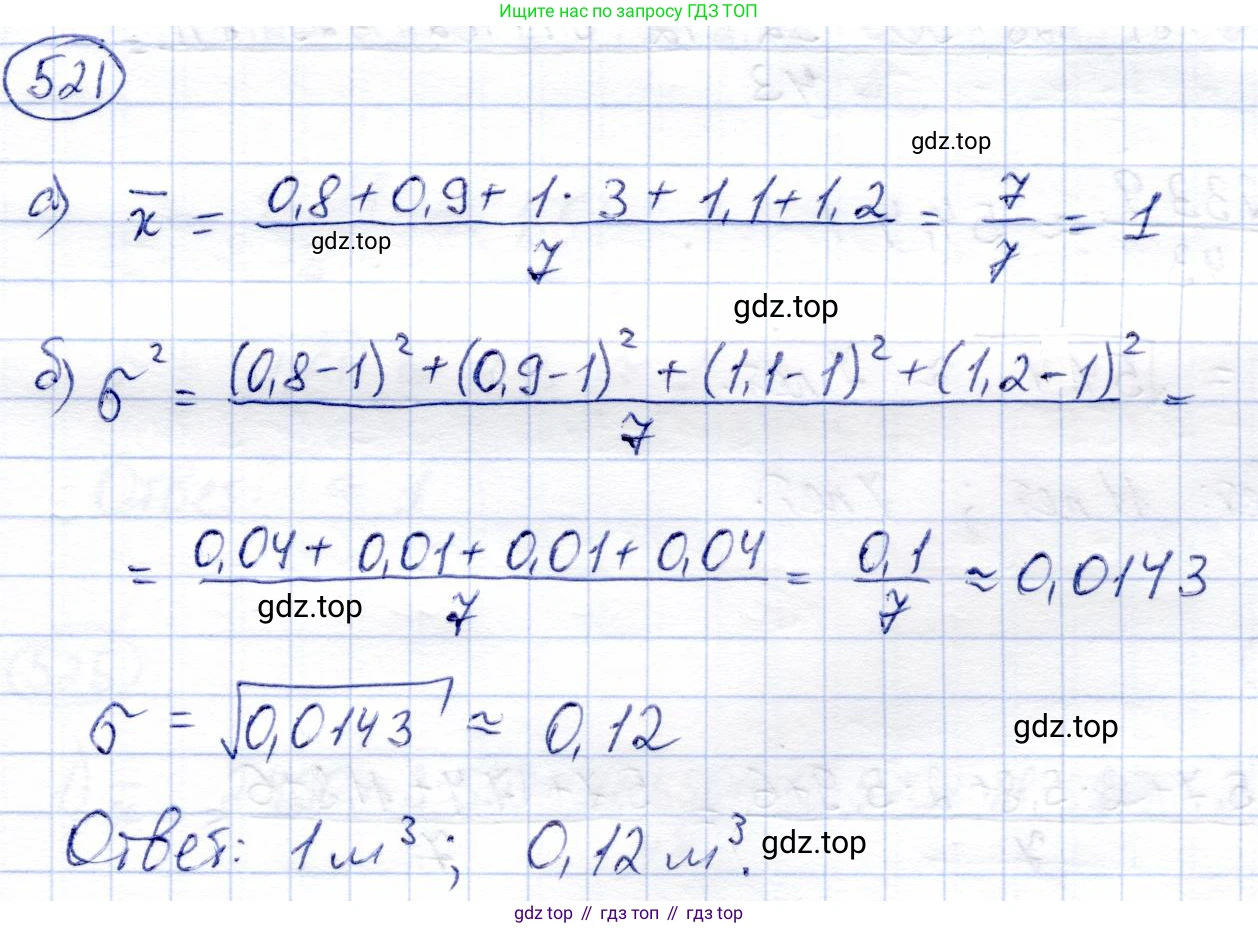 Ищите нас по запросу ГДЗ ТОП
521
gdz.top
а) x̄ = (0,8 + 0,9 + 1 · 3 + 1,1 + 1,2)/7 = 7/7 = 1
gdz.top
gdz.top
б) σ² = ((0,8 - 1)² + (0,9 - 1)² + (1,1 - 1)² + (1,2 - 1)²)/7 =
= (0,04 + 0,01 + 0,01 + 0,04)/7 = 0,1/7 ≈ 0,0143
gdz.top
σ = √0,0143 ≈ 0,12
gdz.top
Ответ: 1 м³; 0,12 м³.
gdz.top
gdz top // гдз топ // gdz.top